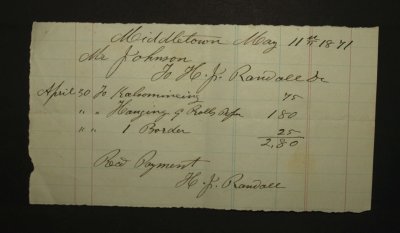 Middletown May 11th 1871
Mr Johnson
To H. J. Randall Dr
April 30 To Kalsomineing 75
" " Hanging 9 Rolls Paper 180
" " 1 Border 25
2,80
Recd Payment
H. J. Randall